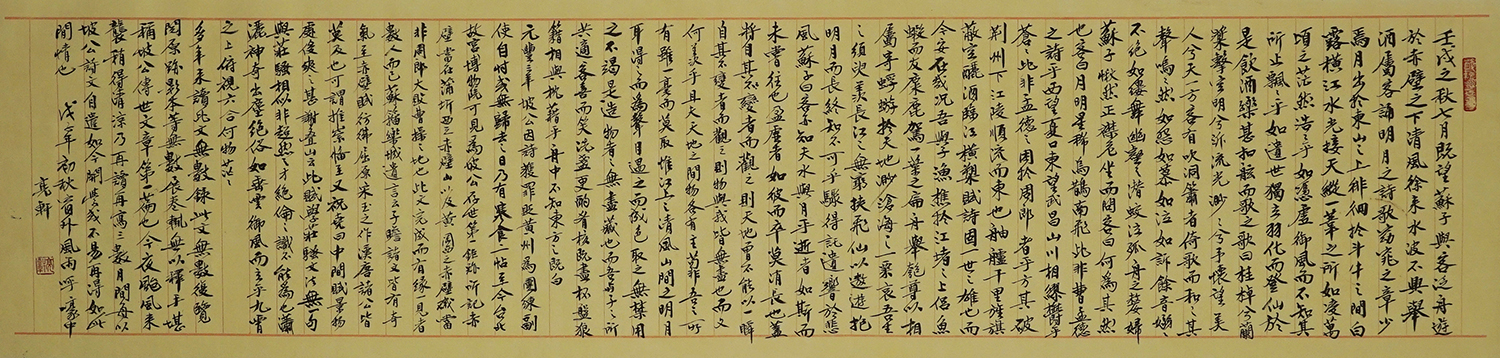 壬戌之秋七月既望蘇子與客泛舟遊
於赤壁之下清風徐來水波不興舉
酒屬客誦明月之詩歌窈窕之章少
焉月出於東山之上徘徊於斗牛之間白
露橫江水光接天縱一葦之所如凌萬
頃之茫然浩々乎如憑虛御風而不知其
所止飄々乎如遺世獨立羽化而登仙於
是飲酒樂甚扣舷而歌之歌曰桂棹兮蘭
槳擊空明兮泝流光渺々兮予懷望美
人兮天一方客有吹洞簫者倚歌而和之其
聲嗚々然如怨如慕如泣如訴餘音嫋々
不絕如縷舞幽壑之潛蛟泣孤舟之嫠婦
蘇子愀然正襟危坐而問客曰何為其然
也客曰月明星稀烏鵲南飛此非曹孟德
之詩乎西望夏口東望武昌山川相繆鬱乎
蒼々此非孟德之困於周郎者乎方其破
荊州下江陵順流而東也舳艫千里旌旗
蔽空釃酒臨江橫槊賦詩固一世之雄也而
今安在哉況吾與子漁樵於江渚之上侶魚
蝦而友麋鹿駕一葉之扁舟舉匏尊以相
屬寄蜉蝣於天地渺滄海之一粟哀吾生
之須臾羨長江之無窮挾飛仙以遨遊抱
明月而長終知不可乎驟得託遺響於悲
風蘇子曰客亦知夫水與月乎逝者如斯而
未嘗往也盈虛者如彼而卒莫消長也蓋
將自其變者而觀之則天地曾不能以一瞬
自其不變者而觀之則物與我皆無盡也而又
何羨乎且夫天地之間物各有主苟非吾之所
有雖一毫而莫取惟江上之清風山間之明月
耳得之而為聲目遇之而成色取之無禁用
之不竭是造物者之無盡藏也而吾與子之所
共適客喜而笑洗盞更酌肴核既盡杯盤狼
籍相與枕藉乎舟中不知東方之既白
元豐年坡公因詩獲罪貶黃州為團練副
使自時或無歸去之日乃有寒食一帖至今台北
故宮博物院可見為坡公存世第一鉅跡所記赤
壁當在蒲圻西之赤壁山以及黃岡之赤壁磯當
非周郎大敗曹操之地也此文完成而有緣一見者
數人而已蘇籀欒城遺言云子瞻諸文皆有奇
氣至赤壁賦彷彿屈原宋玉之作漢唐諸公皆
莫及也可謂推崇備至又祝堯曰中間賦景物
處俊爽之甚謝疊山云此賦學莊騷文法無一句
與莊騷相似非超然之才絕倫之識不能為也瀟
灑神奇出塵絕俗如乘雲御風而立乎九霄
之上俯視六合何物茫々
多年來讀此文無數錄此文無數後覽
閱原跡影本等無數展卷輒無以釋手堪
稱坡公傳世文章第一篇也今夜颱風來
襲稍得清涼乃再讀再寫之歲月間每以
坡公詩文自遣如今或不易再得如此
閒情也 年初秋窗外風雨呼嚎中
亮軒